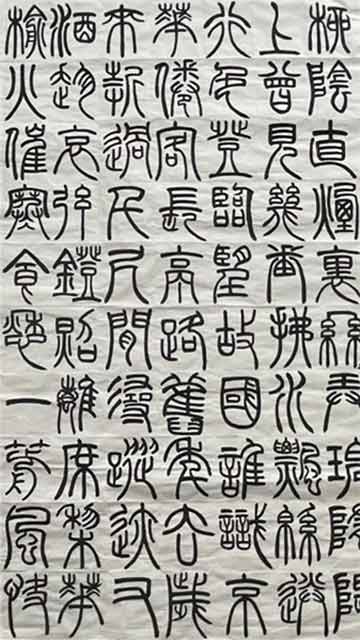 柳陰直煙裏絲弄碧隋堤
上曾見幾番拂水飄綿送
行色登臨望故國誰識京
華倦客長亭路舊年去歲
來折過尺閒尋蹤跡又
酒趁哀弦燈照離席梨花
榆火催寒食愁一箭風快